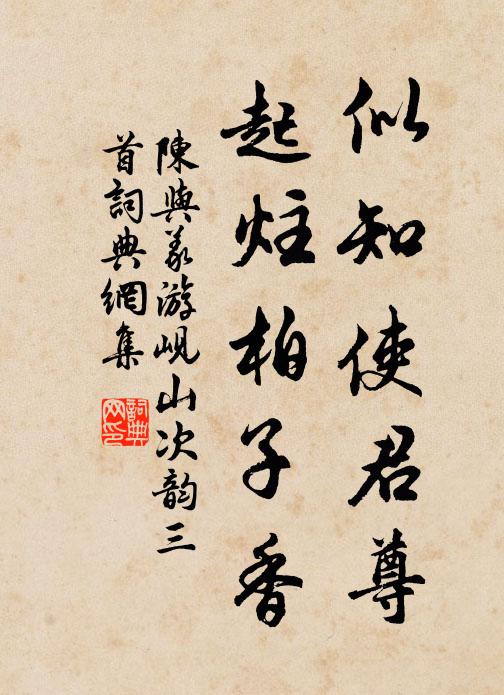 似知使君尊
起炷柏子香
陳與義游峴山次韵三
首詞典網集
詞典
网印